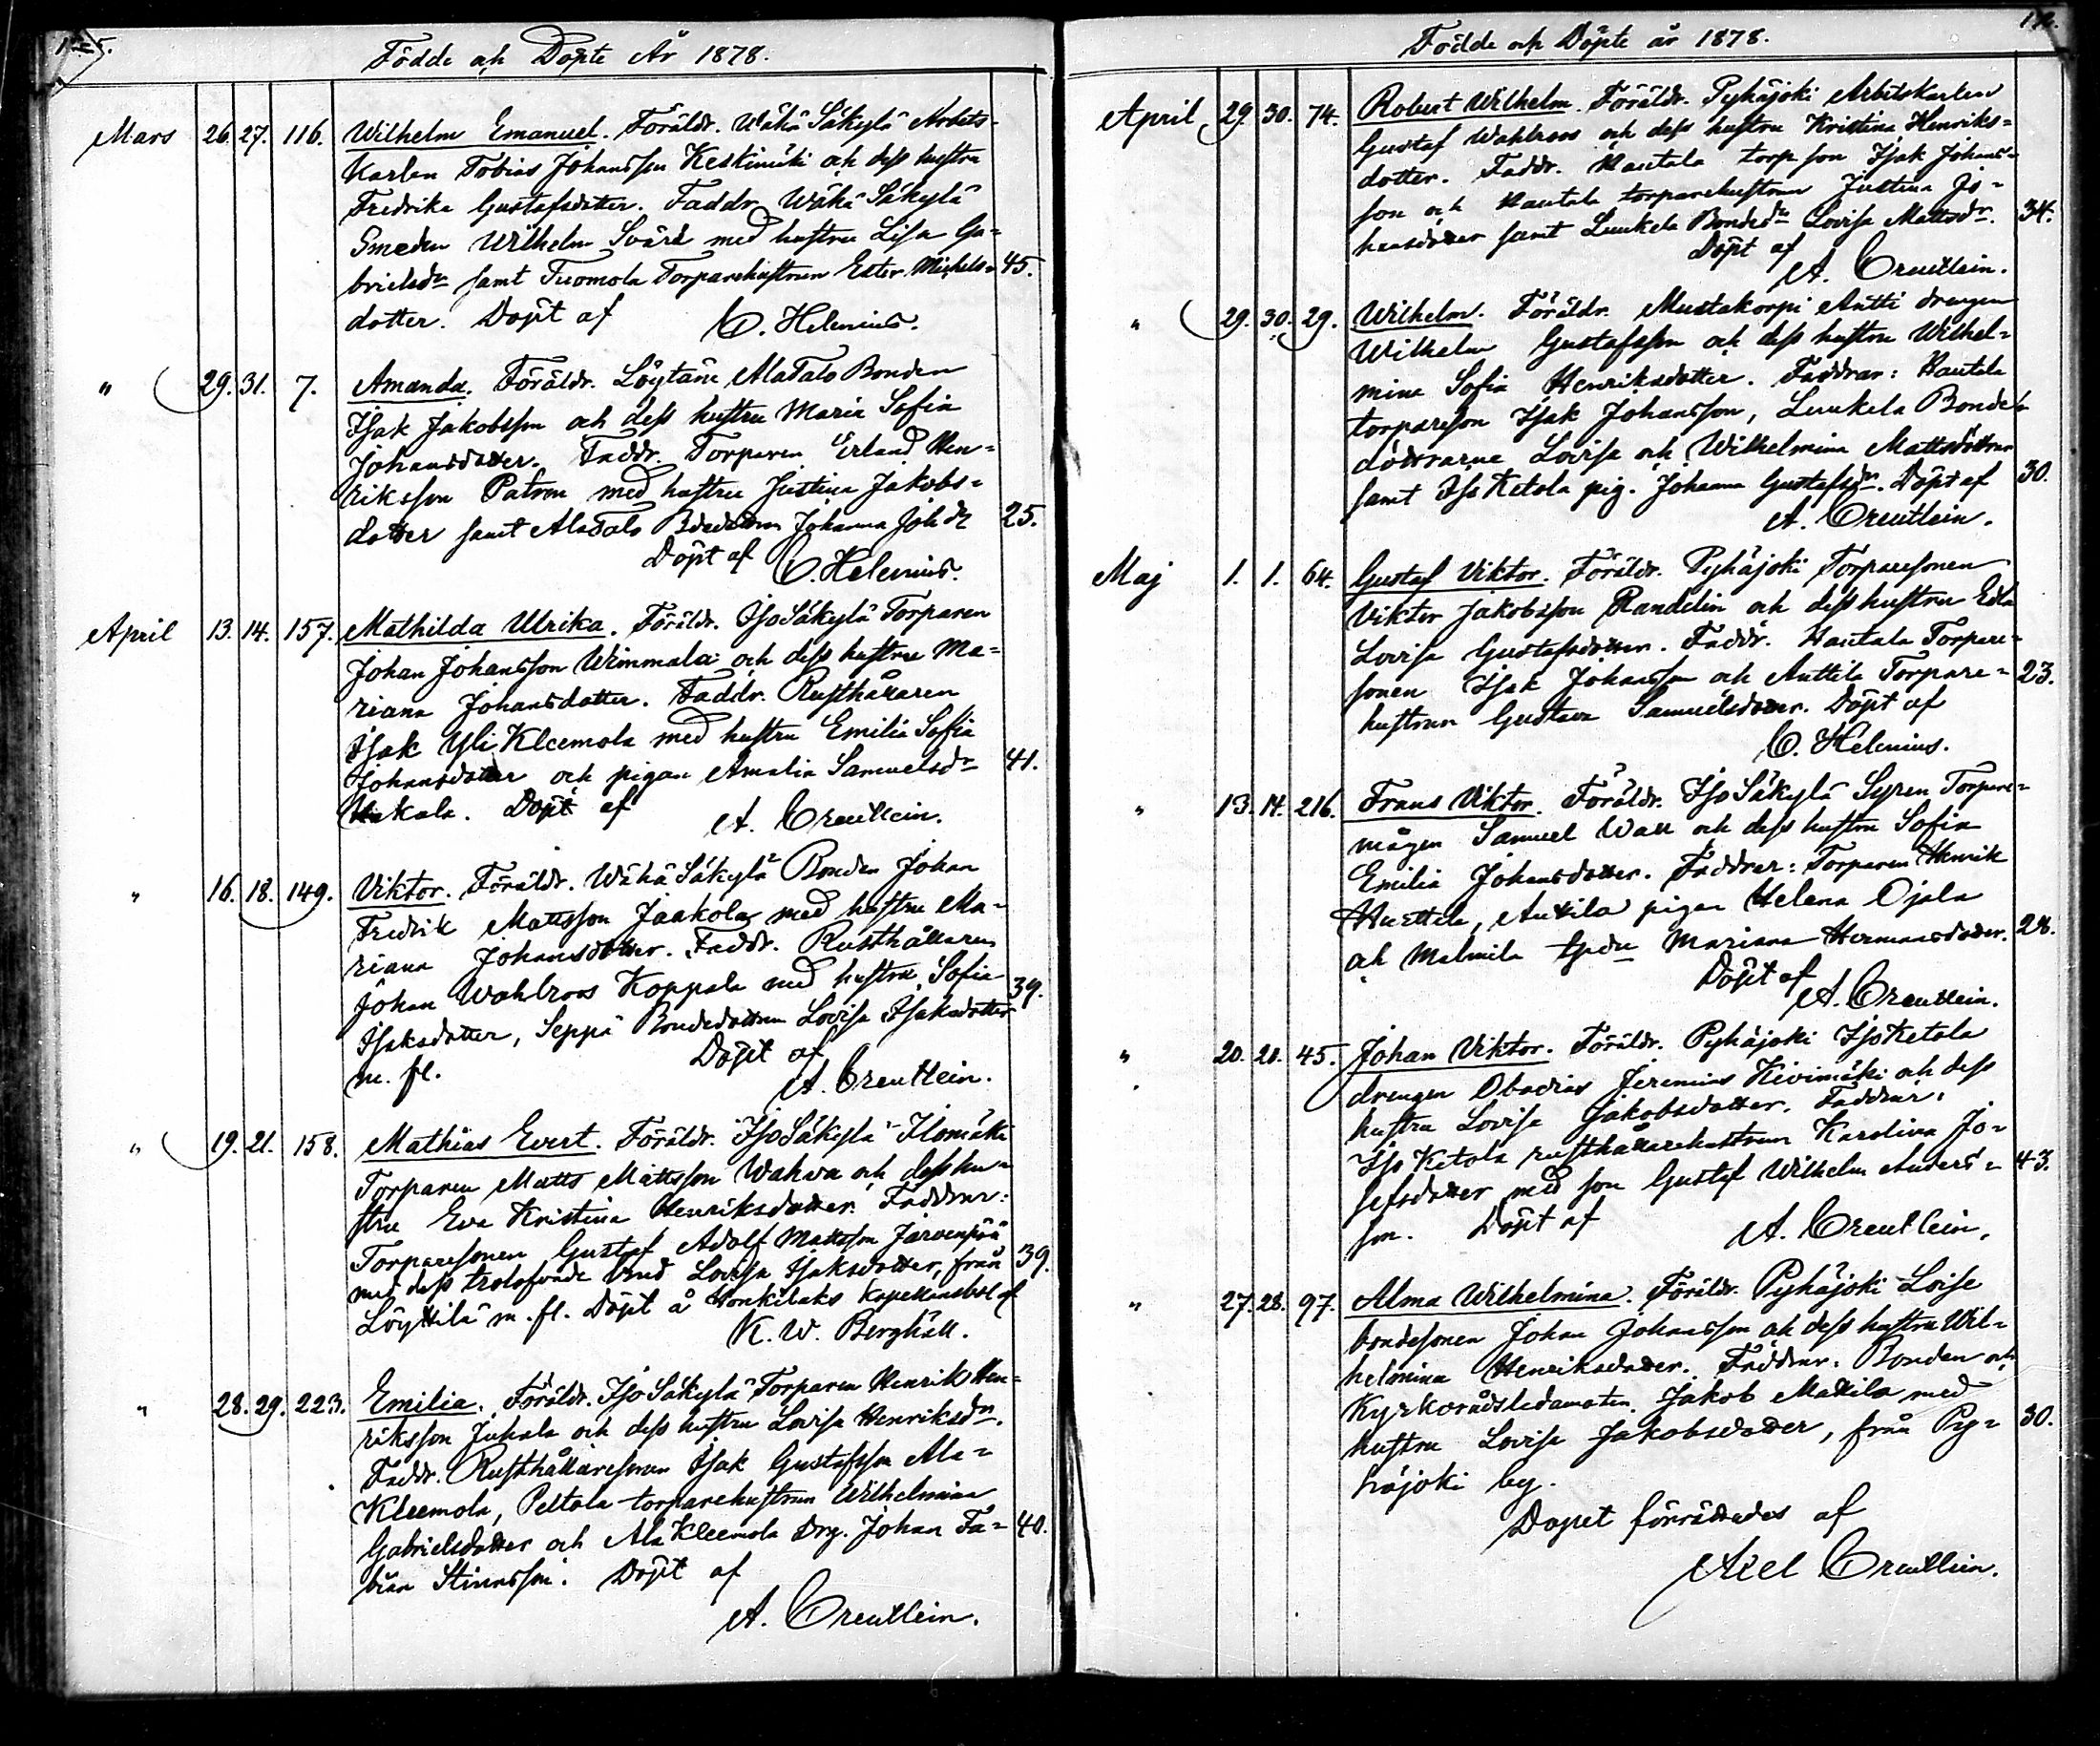 Födde och Döpte År 1878.
Mars 26. 27. 116. Wilhelm Emanuel. Föräldr. Wähä Säkylä Arbets-
Karlen Tobias Johansson Keskimäki och dess hustru
Fredrika Gustafsdotter. Faddr. Wähä Säkylä
Smeden Wilhelm Svärd med hustru Lisa Ga-
brielsdr samt Tuomola Torparehustrun Ester Michels- 45.
dotter. Döpt af C. Helenius.
" 29. 31. 7. Amanda. Föräldr. Löytäne AlaTalo Bonden
Isak Jakobsson och dess hustru Maria Sofia
Johansdotter. Faddr. Torparen Erland Hen-
riksson Patron med hustru Justina Jakobs-
dotter samt AlaTalo Johanna Joh.dr 25.
Döpt af C. Helenius.
April 13. 14. 157. Mathilda Ulrika. Föräldr. Iso Säkylä Torparen
Johan Johansson Wimmala och dess hustru Ma-
riana Johansdotter. Faddr. Rusthållaren
Isak Yli Kleemola med hustru Emilia Sofia
Johansdotter och pigan Amalia Samuelsdr 41.
Ukkola. Döpt af A. Creutlein.
" 16. 18. 149. Viktor. Föräldr. Wähä Säkylä Bonden Johan
Fredrik Mattsson Jaakola med hustru Ma-
riana Johansdotter. Faddr. Rusthållaren
Johan Wahlroos Koppala med hustru Sofia 39.
Isaksdotter, Seppä Bondedottren Lovisa Isaksdotter
m. fl. Döpt af
A. Creutlein.
" 19. 21. 158. Mathias Evert. Föräldr. Iso Säkylä Ilomäki
Torparen Matts Mattsson Wahva och dess hu-
stru Eva Kristina Henriksdotter. Faddrar:
Torparesonen Gustaf Adolf Mattsson Järvenpää 39.
med dess trolofvade brud Lovisa Isaksdotter, från
Löyttilä m. fl. Döpt å Honkilaks Kapellansbol af
K. W. Berghäll.
" 28. 29. 223. Emilia. Föräldr. Iso Säkylä Torparen Henrik Hen-
riksson Juhala och dess hustru Lovisa Henriksdr.
Faddr. Rusthållaresonen Isak Gustafsson Ala-
Kleemola, Peltola torparehustrun Wilhelmina
Gabrielsdotter och Ala Kleemola Drg. Johan Fa- 40.
bian Stinasson. Döpt af
A. Creutlein.
Födde och Döpte år 1878.
April 29. 30. 74. Robert Wilhelm. Föräldr. Pyhäjoki Arbetskarlen
Gustaf Wahlroos och dess hustru Kristina Henriks-
dotter. Faddr. Hautala torp. son Isak Johans-
son och Hautala torparehustrun Justina Jo-
hansdotter samt Luukela Bondedr Lovisa Mattsdr. 34.
Döpt af
A. Creutlein.
" 29. 30. 29. Wilhelm. Föräldr. Mustakorpi Antti drengen
Wilhelm Gustafsson och dess hustru Wilhel-
mina Sofia Henriksdotter. Faddrar: Hautala
torpareson Isak Johansson, Luukela Bonde-
döttrarne Lovisa och Wilhelmina Mattsdöttrar
samt Iso Ketola pig. Johanna Gustafsdr. Döpt af 30.
A. Creutlein.
Maj 1. 1. 64. Gustaf Viktor. Föräldr. Pyhäjoki Torparesonen
Viktor Jakobsson Randelin och dess hustru Edla
Lovisa Gustafsdotter. Faddr. Hautala Torpare-
sonen Isak Johansson och Anttila Torpare- 23.
hustrun Gustava Samuelsdotter. Döpt af
C. Helenius.
" 13. 14. 216. Frans Viktor. Föräldr. Iso Säkylä Sypen Torpare-
mågen Samuel Wall och dess hustru Sofia
Emilia Johansdotter. Faddrar: Torparen Henrik
Hurttila, Anttila pigan Helena Ojala
och Malmila Mariana Hermansdotter. 28.
Döpt af
A. Creutlein.
" 20. 20. 45. Johan Viktor. Föräldr. Pyhäjoki Iso Ketola
drengen Obadias Jeremias Kivimäki och dess
hustru Lovisa Jakobsdotter. Faddrar:
Iso Ketola rusthållarehustrun Karolina Jo-
sefsdotter med son Gustaf Wilhelm Anders- 43.
son. Döpt af A. Creutlein.
" 27. 28. 97. Alma Wilhelmina. Föräldr. Pyhäjoki Loise
bondesonen Johan Johansson och dess hustru Wil-
helmina Henriksdotter. Faddrar: Bonden och
Kyrkorådsledamoten Jakob Mattila med
hustru Lovisa Jakobsdotter, från Py- 30.
häjoki by.
Dopet förrättades af
Axel Creutlein.